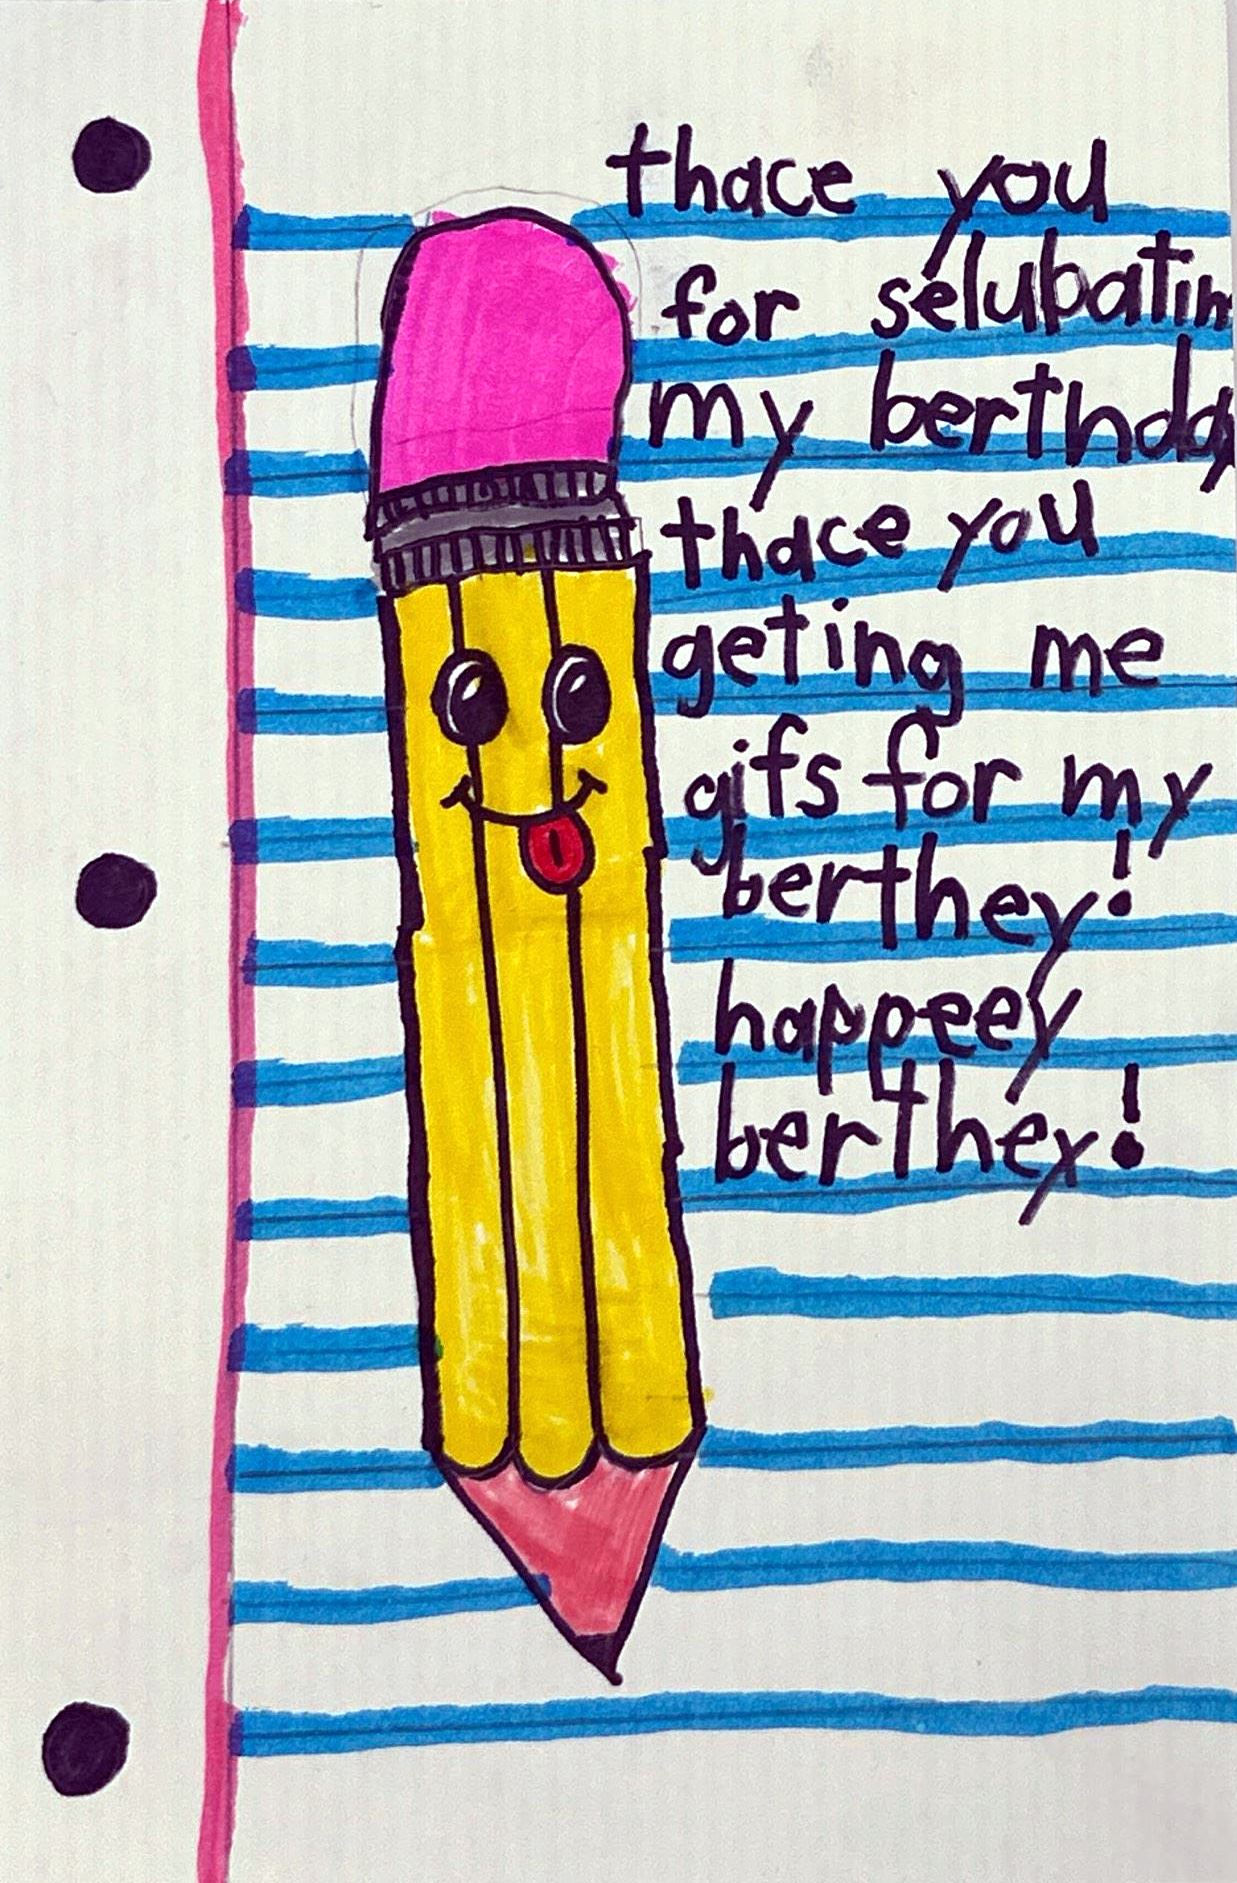 thace you
for selubatin
my berthday
thace you
geting me
gifs for my
berthey!
happeey
berthey!